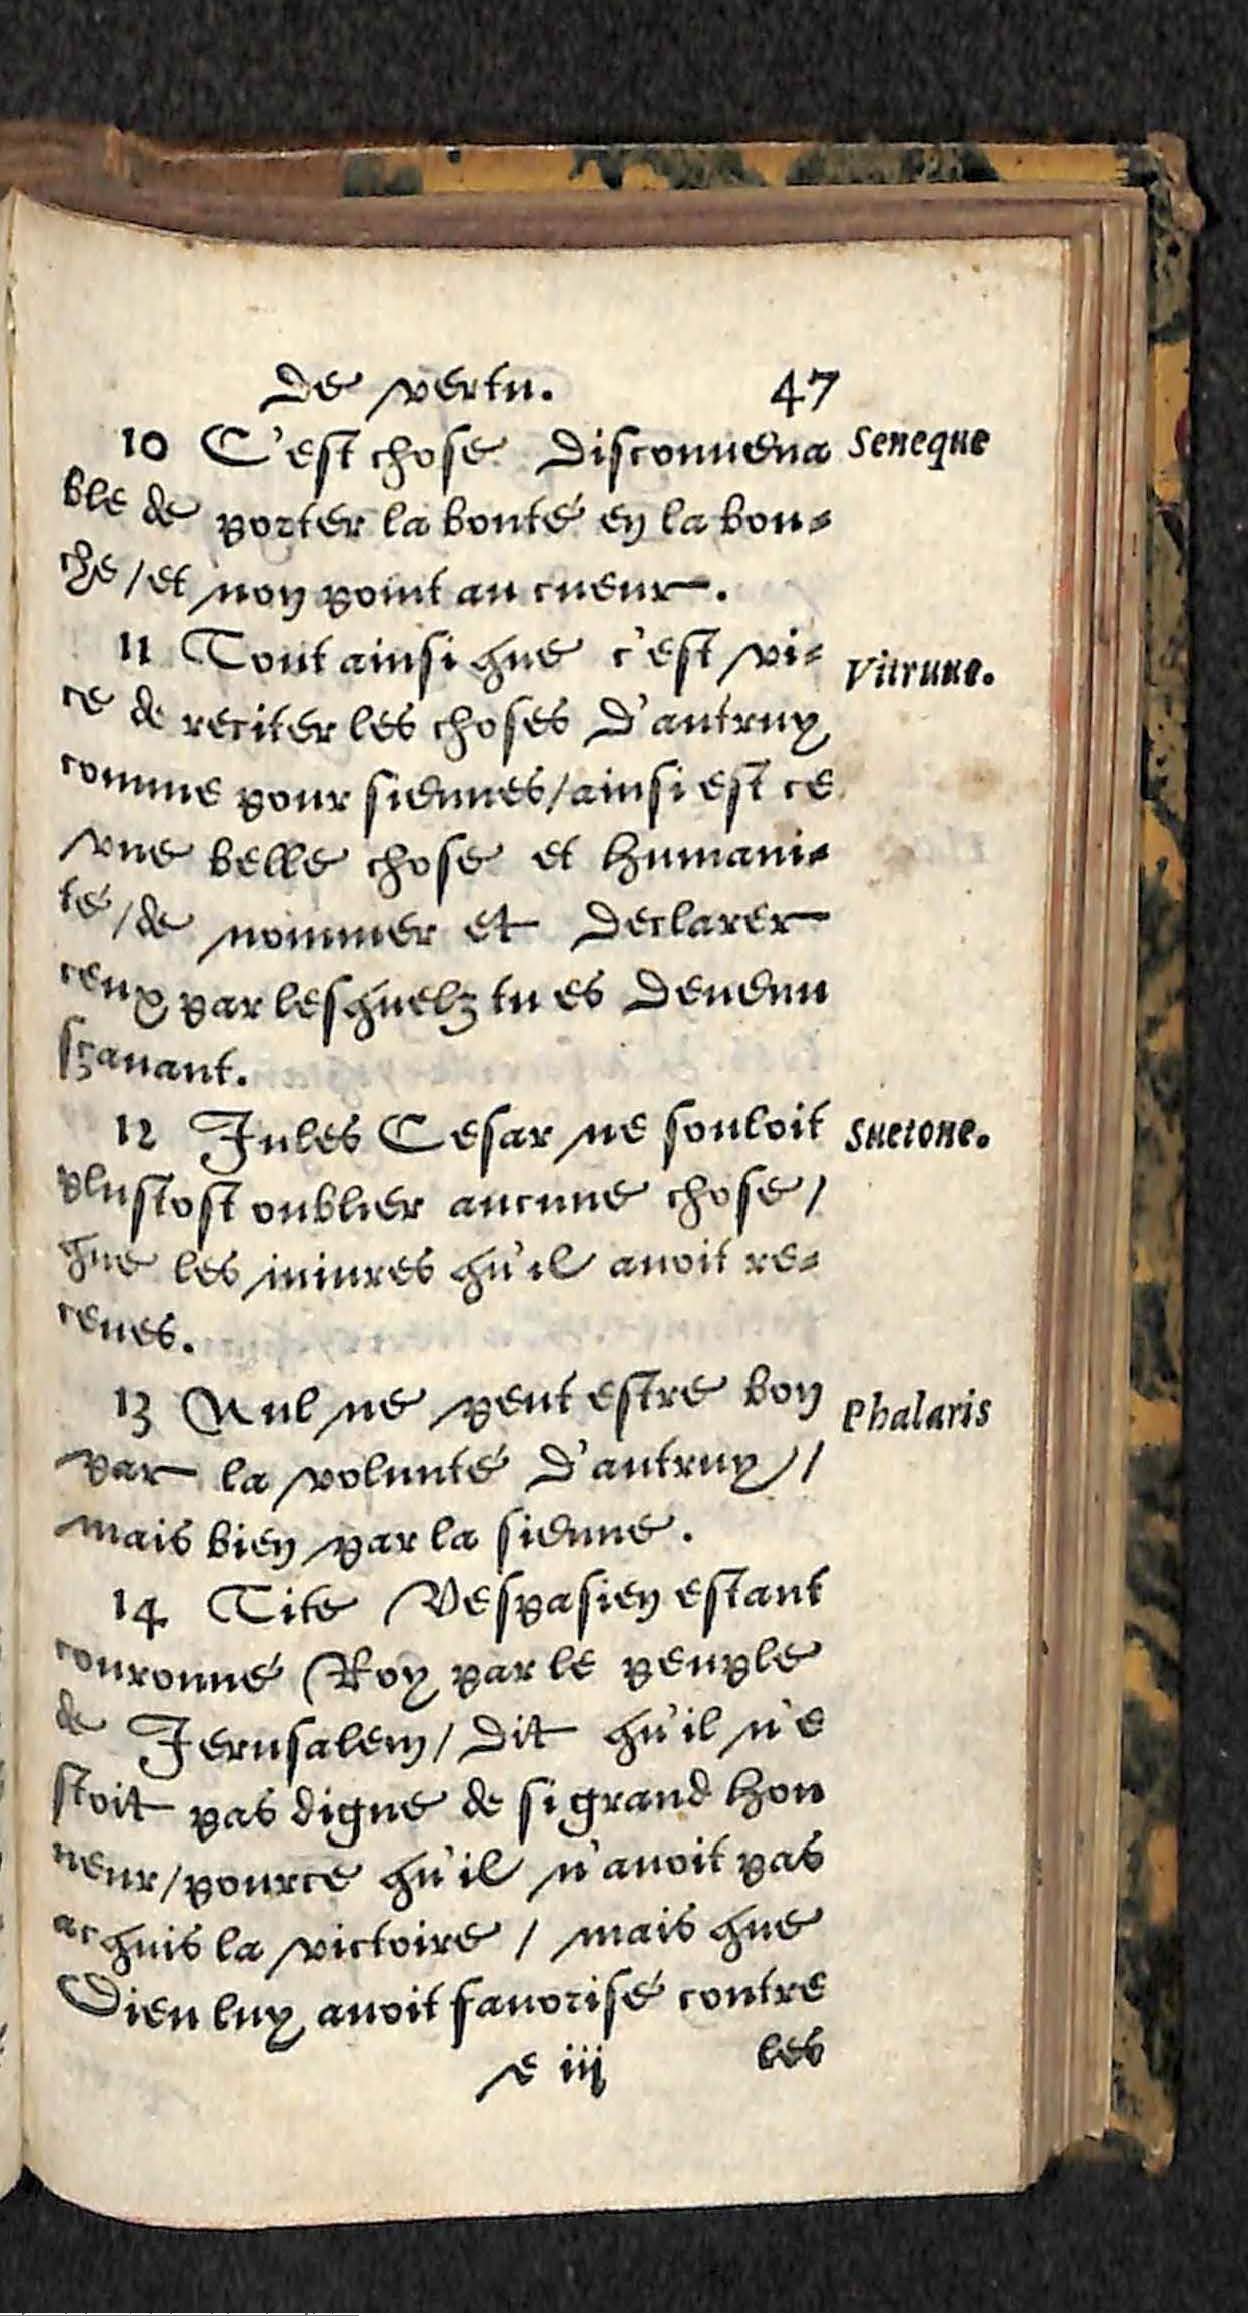 de vertu. 47
10 C'est chose disconuena Seneque
ble de porter la bonté en la bou-
che / et non point au cueur.
11 Tout ainsi que c'est vi- Vitruue.
ce de reciter les choses d'autruy
comme pour siennes / ainsi est ce
vne belle chose et humani-
té / de nommer et declarer
ceux par lesquelz tu es deuenu
sçauant.
12 Jules Cesar ne souloit Suetone.
plustost oublier aucune chose /
que les iniures qu'il auoit re-
ceues.
13 Nul ne peut estre bon Phalaris
par la volunté d'autruy /
mais bien par la sienne.
14 Tite Vespasien estant
couronné Roy par le peuple
de Jerusalem / dit qu'il n'e
stoit pas digne de si grand hon
neur / pource qu'il n'auoit pas
acquis la victoire / mais que
Dieu luy auoit fauorisé contre
e iij les